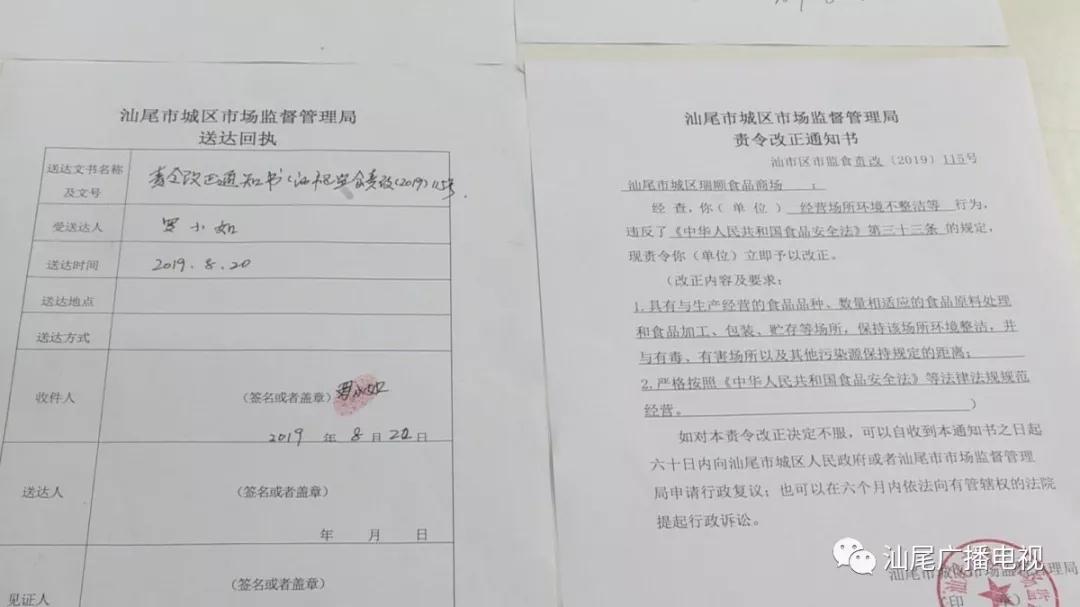 汕尾市城区市场监督管理局
送达回执
送达文书名称
及文号
责令改正通知书(汕市区市监食责改(2019)115号.
受送达人
罗小如
送达时间
2019.8.20
送达地点
送达方式
收件人
(签名或者盖章)
2019 年 8 月 20 日
送达人
(签名或者盖章)
年 月 日
见证人
(签名或者盖章)
汕尾市城区市场监督管理局
责令改正通知书
汕市区市监食责改〔2019〕115号
汕尾市城区瑞顺食品商场 :
经查,你(单位) 经营场所环境不整洁等 行为,
违反了《中华人民共和国食品安全法》第三十三条 的规定,
现责令你(单位)立即予以改正。
(改正内容及要求:
1.具有与生产经营的食品品种、数量相适应的食品原料处理
和食品加工、包装、贮存等场所,保持该场所环境整洁,并
与有毒、有害场所以及其他污染源保持规定的距离;
2.严格按照《中华人民共和国食品安全法》等法律法规规范
经营。 )
如对本责令改正决定不服,可以自收到本通知书之日起
六十日内向汕尾市城区人民政府或者汕尾市市场监督管理
局申请行政复议;也可以在六个月内依法向有管辖权的法院
提起行政诉讼。
汕尾市城区市场监督管理局
汕尾广播电视